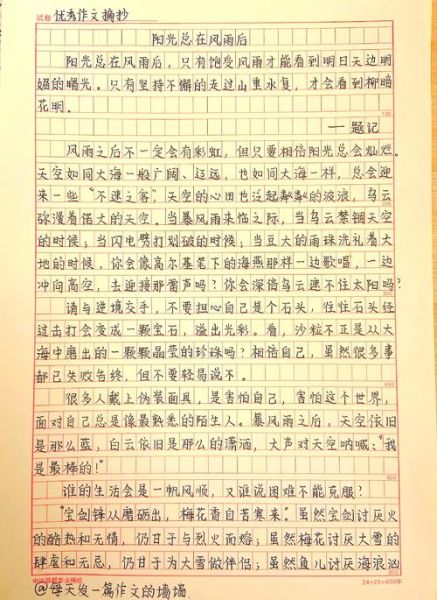 试卷 优秀作文摘抄
阳光总在风雨后
阳光总在风雨后，只有饱受风雨才能看到明日天边明
媚的曙光。只有坚持不懈的走过山重水复，才会看到柳暗
花明。
100
——题记
风雨之后不一定会有彩虹，但只要相信阳光总会灿烂。
天空如同大海一般广阔、辽远，也如同大海一样，总会迎
来一些“不速之客”，天空的心田也泛起粼粼的波浪，乌云
弥漫着偌大的天空。当暴风雨来临之际，当乌云萦绷天空
的时候；当闪电劈打划破的时候；当豆大的雨珠洗礼着大
地的时候，你会像高尔基笔下的海燕那样一边歌唱，一边
冲向高空，去迎接那雷声吗？你会深信乌云遮不住太阳吗？
请与逆境交手，不要担心自己是个石头，往往石头经
过击打会变成一颗宝石，溢出光彩。看，沙粒不正是从大
海中磨出的一颗颗晶莹的珍珠吗？相信自己，虽然很多事
都已失败告终，但不要轻易说不。
400
很多人戴上伪装面具，是害怕自己，害怕这个世界，
面对自己总是像最熟悉的陌生人。暴风雨之后，天空依旧
是那么蓝，白云依旧是那么的潇洒，大声对天空呐喊：“我
是最棒的！”
500
谁的生活会是一帆风顺，又谁说困难不能克服？
“宝剑锋从磨砺出，梅花香自苦寒来”。虽然宝剑讨厌火
的酷热和无情，仍甘于与烈火而熔；虽然梅花讨厌大雪的
肆虐和无忌，仍甘于为大雪做伴侣；虽然鱼儿讨厌海浪汹
24×25=600字
@每天发一篇作文的墙墙